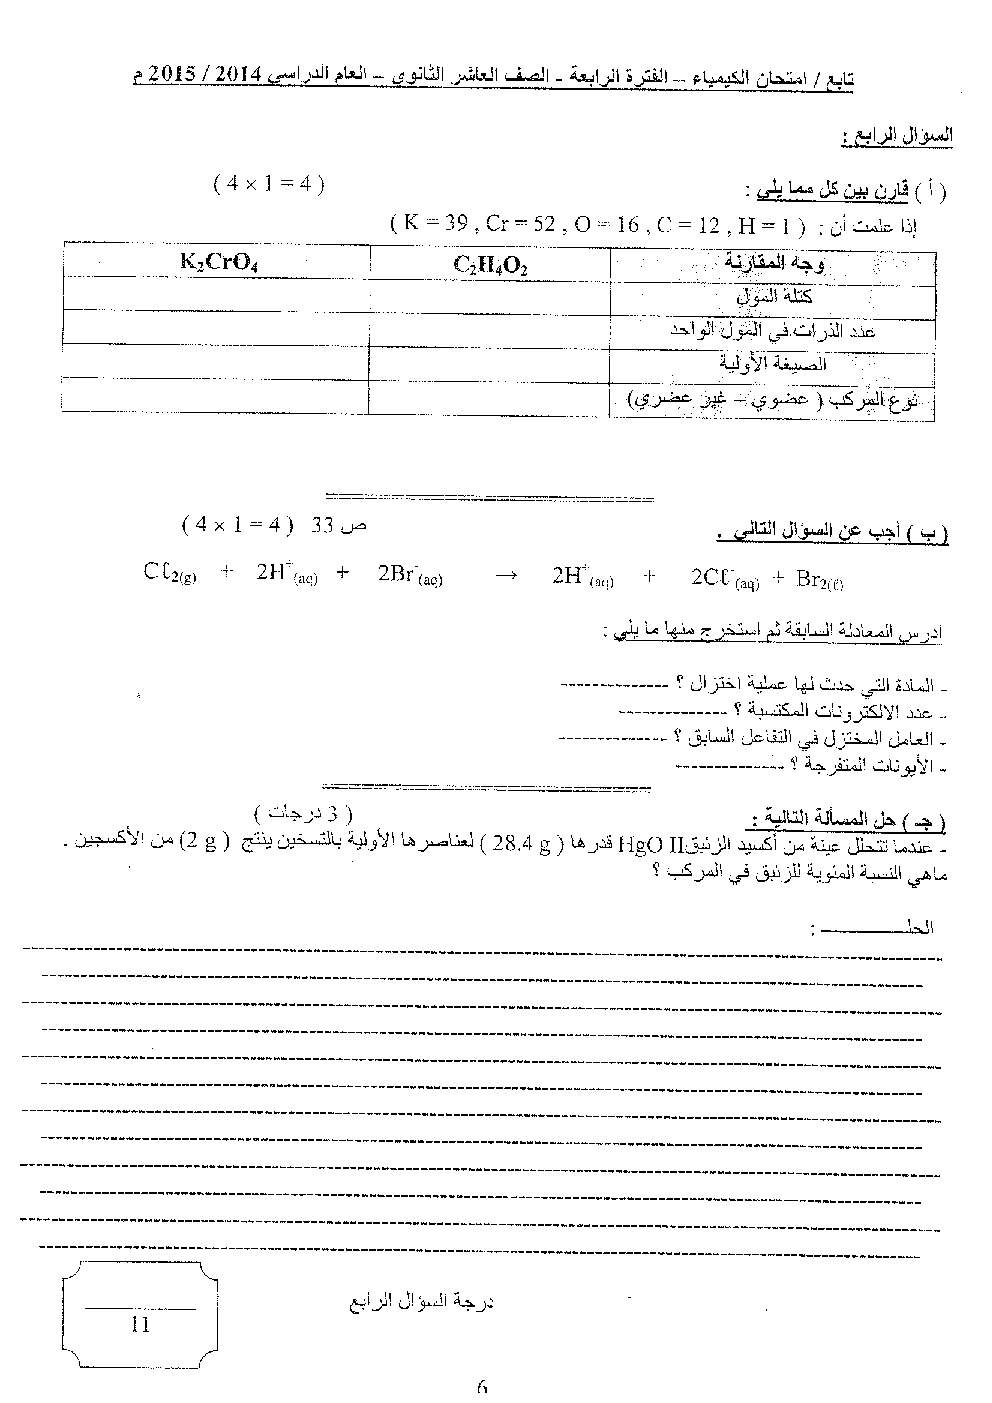 تابع / امتحان الكيمياء – الفترة الرابعة - الصف العاشر الثانوي – العام الدراسي 2014 / 2015 م
السؤال الرابع :
( أ ) قارن بين كل مما يلي : ( 4 × 1 = 4 )
إذا علمت أن : ( K = 39 , Cr = 52 , O = 16 , C = 12 , H = 1 )
وجه المقارنة C₂H₄O₂ K₂CrO₄
كتلة المول
عدد الذرات في المول الواحد
الصيغة الأولية
نوع المركب ( عضوي – غير عضري)
( ب ) أجب عن السؤال التالي . ص 33 ( 4 × 1 = 4 )
Cℓ₂(g) + 2H⁺(aq) + 2Br⁻(aq) → 2H⁺(aq) + 2Cℓ⁻(aq) + Br₂(ℓ)
ادرس المعادلة السابقة ثم استخرج منها ما يلي :
- المادة التي حدث لها عملية اختزال ؟ --------------
- عدد الالكترونات المكتسبة ؟ --------------
- العامل المختزل في التفاعل السابق ؟ --------------
- الأيونات المتفرجة ؟ --------------
( جـ ) حل المسألة التالية : ( 3 درجات )
- عندما تتحلل عينة من أكسيد الزئبق HgO II قدرها ( 28.4 g ) لعناصرها الأولية بالتسخين ينتج ( 2 g ) من الأكسجين .
ماهي النسبة المئوية للزئبق في المركب ؟
الحلـــــــــ :
درجة السؤال الرابع
11
6